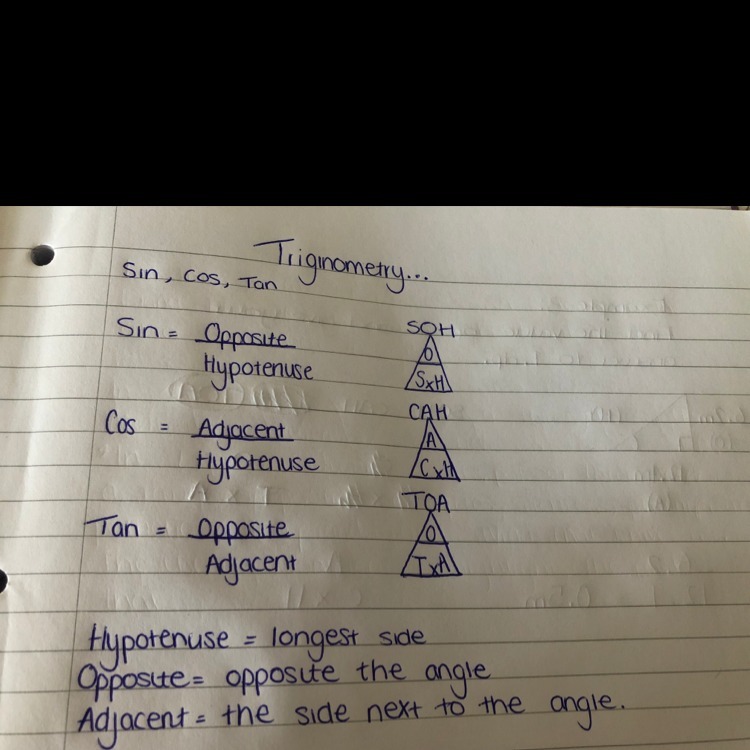 Triginometry...
Sin, Cos, Tan
Sin = Opposite
Hypotenuse
SOH
O
SxH
Cos = Adjacent
Hypotenuse
CAH
A
CxH
Tan = Opposite
Adjacent
TOA
O
TxA
Hypotenuse = longest side
Opposite = opposite the angle
Adjacent = the side next to the angle.